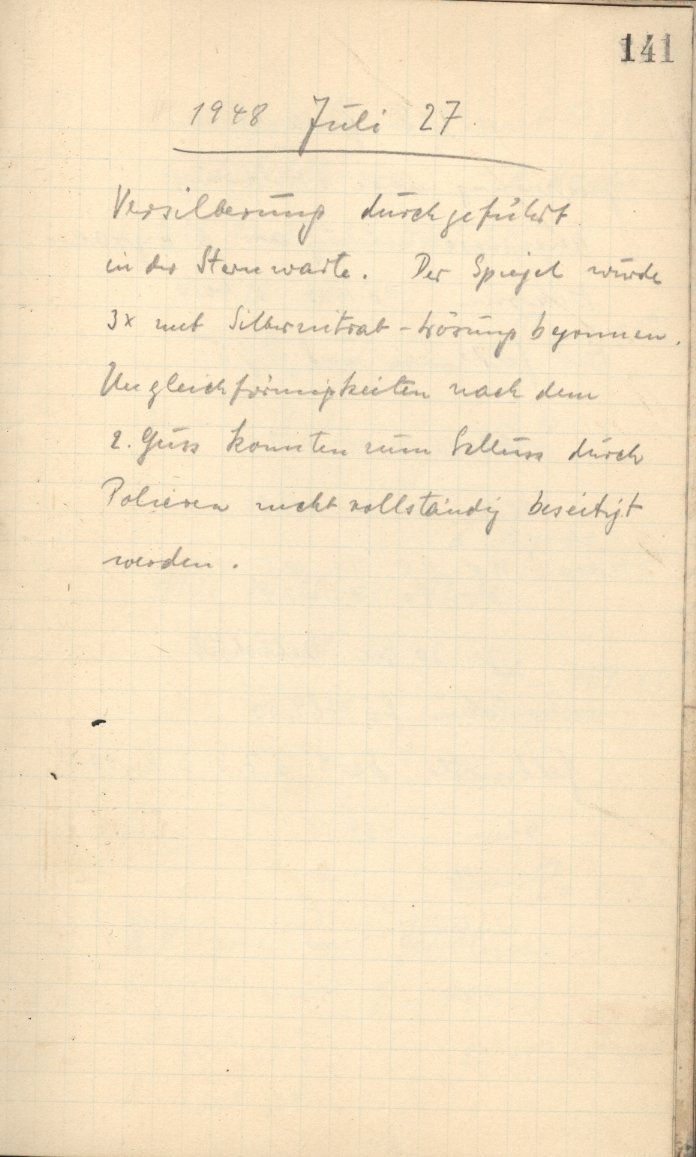 141
1948 Juli 27.
Versilberung durchgeführt
in der Sternwarte. Der Spiegel wurde
3x mit Silbernitrat-Lösung begonnen.
Ungleichförmigkeiten nach dem
2. Guss konnten zum Schluss durch
Polieren nicht vollständig beseitigt
werden.